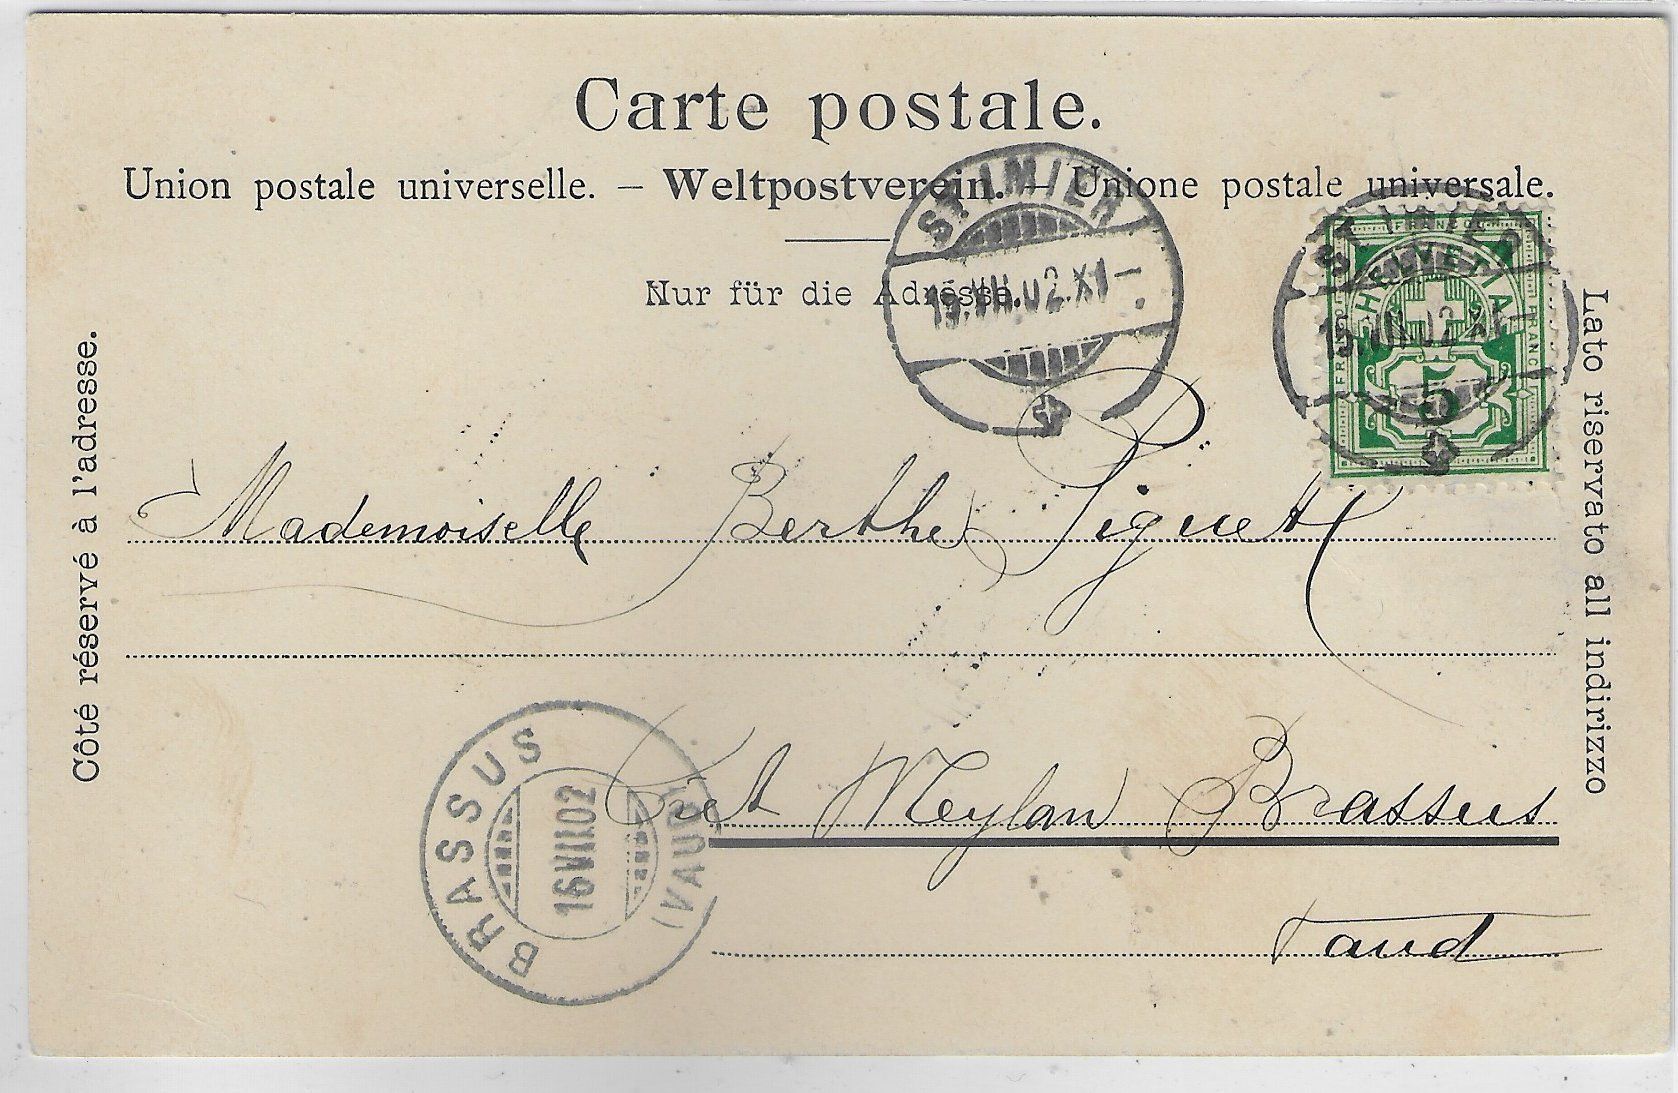 Carte postale.
Union postale universelle. – Weltpostverein. – Unione postale universale.
Nur für die Adresse.
Côté réservé à l'adresse.
Lato riservato all indirizzo
ST. IMIER
15.VII.02.XI–
ST. IMIER
15.VII.02.XI
FRANCO
HELVETIA
FRANCO
FRANCO
5
Mademoiselle Berthe Piguet
Crêt Meylan Brassus
Vaud
BRASSUS
16 VII.02
(VAUD)